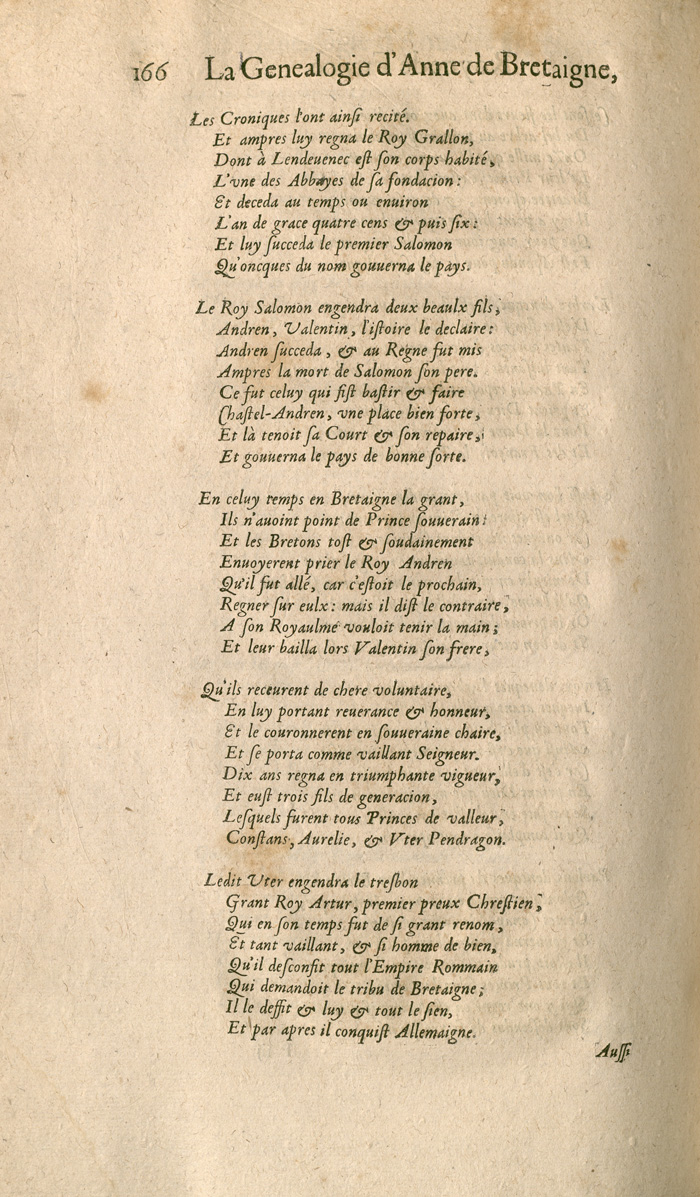 166 La Genealogie d'Anne de Bretaigne,
Les Croniques l'ont ainſi recité.
Et ampres luy regna le Roy Grallon,
Dont à Lendeuenec eſt ſon corps habité,
L'vne des Abbayes de ſa fondacion:
Et deceda au temps ou enuiron
L'an de grace quatre cens & puis ſix:
Et luy ſucceda le premier Salomon
Qu'oncques du nom gouuerna le pays.
Le Roy Salomon engendra deux beaulx fils,
Andren, Valentin, l'iſtoire le declaire:
Andren ſucceda, & au Regne fut mis
Ampres la mort de Salomon ſon pere.
Ce fut celuy qui fiſt baſtir & faire
Chaſtel-Andren, vne place bien forte,
Et là tenoit ſa Court & ſon repaire,
Et gouuerna le pays de bonne ſorte.
En celuy temps en Bretaigne la grant,
Ils n'auoint point de Prince ſouuerain:
Et les Bretons toſt & ſoudainement
Enuoyerent prier le Roy Andren
Qu'il fut allé, car c'eſtoit le prochain,
Regner ſur eulx: mais il diſt le contraire,
A ſon Royaulme vouloit tenir la main;
Et leur bailla lors Valentin ſon frere,
Qu'ils receurent de chere voluntaire,
En luy portant reuerance & honneur,
Et le couronnerent en ſouueraine chaire,
Et ſe porta comme vaillant Seigneur.
Dix ans regna en triumphante vigueur,
Et euſt trois fils de generacion,
Leſquels furent tous Princes de valleur,
Conſtans, Aurelie, & Vter Pendragon.
Ledit Vter engendra le treſbon
Grant Roy Artur, premier preux Chreſtien,
Qui en ſon temps fut de ſi grant renom,
Et tant vaillant, & ſi homme de bien,
Qu'il deſconfit tout l'Empire Rommain
Qui demandoit le tribu de Bretaigne;
Il le deffit & luy & tout le ſien,
Et par apres il conquiſt Allemaigne.
Auſſi